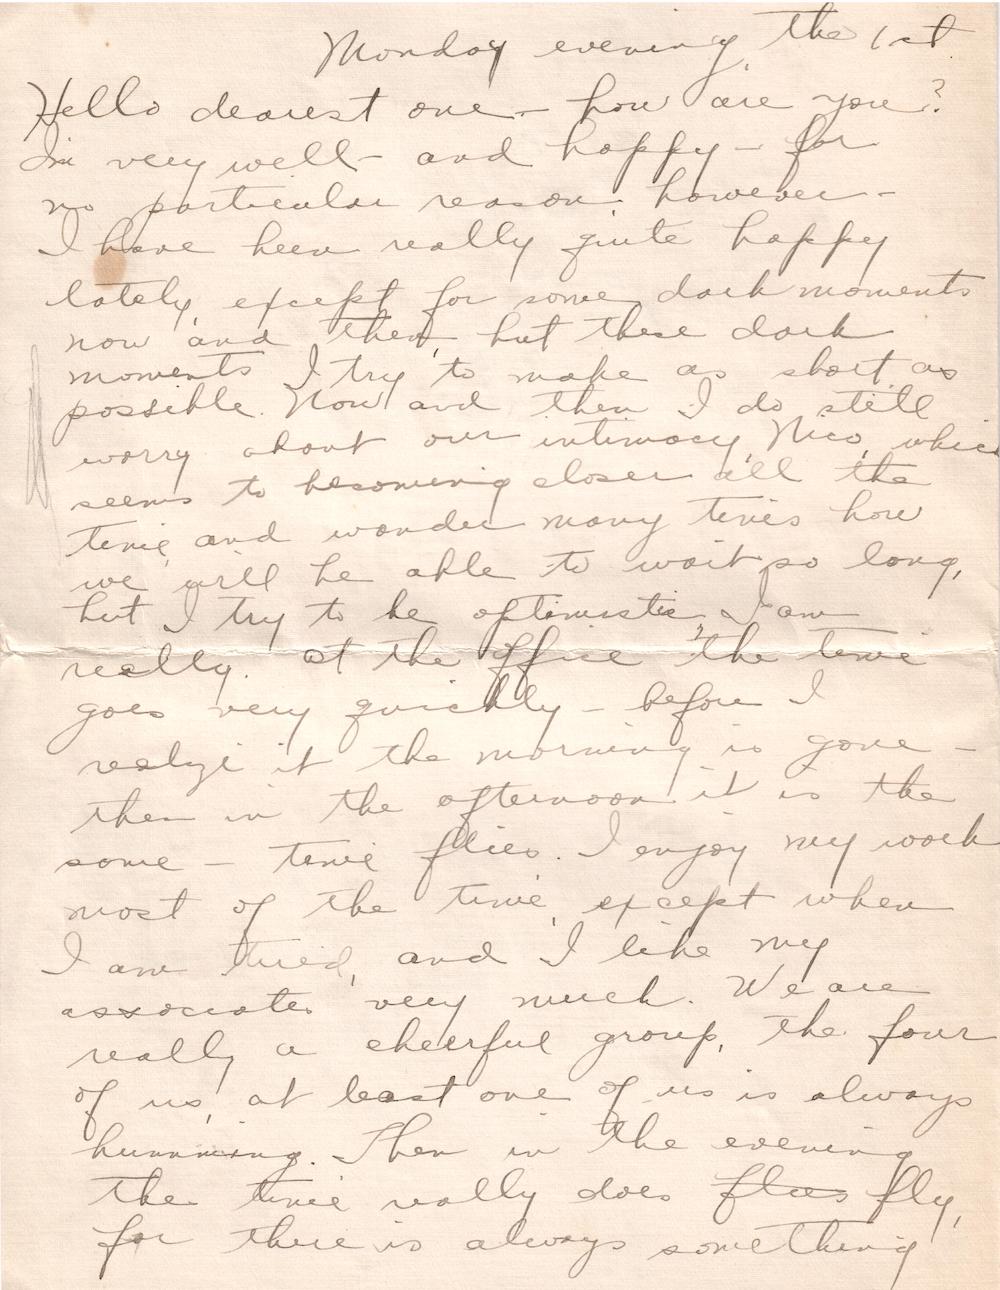 Monday evening, the 1st
Hello dearest one – how are you?
Im very well – and happy – for
no particular reason however –
I have been really quite happy
lately, except for some dark moments
now and then, but these dark
moments I try to make as short as
possible. Now and then I do still
worry about our intimacy, Nico, which
seems to becoming closer all the
time and wonder many times how
we will be able to wait so long,
but I try to be optimistic, I am
really. At the office the time
goes very quickly – before I
realize it the morning is gone –
then in the afternoon it is the
same – time flies. I enjoy my work
most of the time, except when
I am tired, and I like my
associates very much. We are
really a cheerful group, the four
of us, at least one of us is always
humming. Then in the evening
the time really does flies fly,
for there is always something